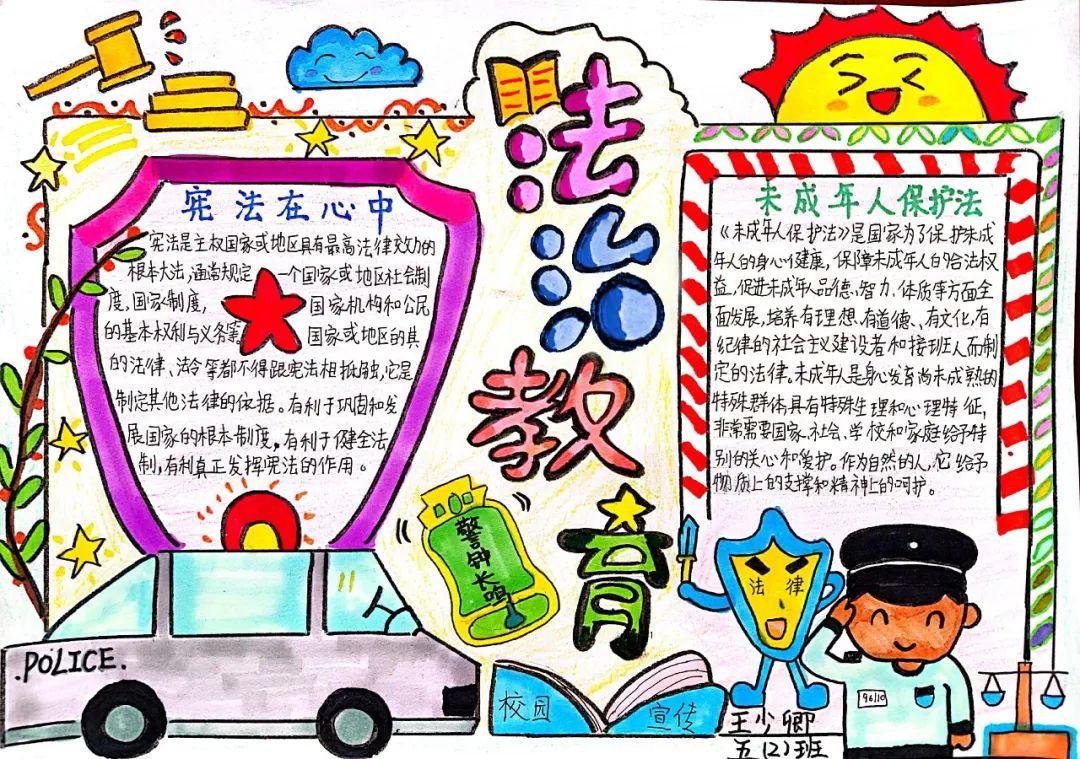 法治教育
宪法在心中
宪法是主权国家或地区具有最高法律效力的
根本大法,通常规定 一个国家或地区社会制
度,国家制度, 国家机构和公民
的基本权利与义务等 国家或地区的其
的法律、法令等都不得跟宪法相抵触,它是
制定其他法律的依据。有利于巩固和发
展国家的根本制度。有利于健全法
制,有利真正发挥宪法的作用。
未成年人保护法
《未成年人保护法》是国家为了保护未成
年人的身心健康,保障未成年人的合法权
益,促进未成年人品德、智力、体质等方面全
面发展,培养有理想、有道德、有文化,有
纪律的社会主义建设者和接班人而制
定的法律。未成年人是身心发育尚未成熟的
特殊群体,具有特殊生理和心理特征,
非常需要国家、社会、学校和家庭给予特
别的关心和爱护。作为自然的人,它给予
物质上的支撑和精神上的呵护。
警钟长鸣
法律
POLICE.
校园 宣传
96110
王少卿
五(2)班